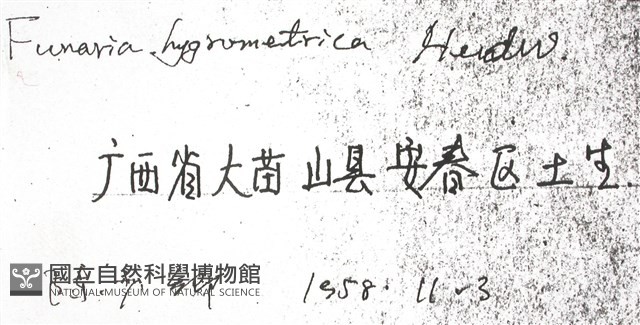 Funaria hygrometrica Hedw.
广西省大苗山县安春区土生.
國立自然科學博物館
NATIONAL MUSEUM OF NATURAL SCIENCE
1958. 11-3